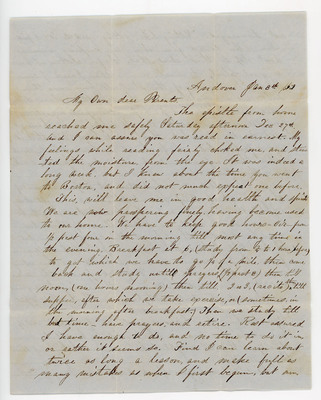 Andover Jan 3th 53
My Own dear Parents
The epistle from home
reached me safely Saturday afternoon Dec 27th
and I can assure you was read in earnest. My
feelings while reading fairly choked me, and star
ted the moisture from the eye. It was indeed a
long week, but I knew about the time you went
to Boston, and did not much expect one before.
This, will leave me in good health and spirits
We are now prospering finely, having become used
to our home. We have to keep good hours.
past five in the morning till most any time in
the evening. Breakfast at 6, (study from 6 to 7 breakfast)
to get which we have to go half a mile then come
back and study until prayers, then till
noon, (an hours nooning) then till 2 or 3, (recite) then till
supper, after which we take exercise, or sometimes in
the morning after breakfast; Then we study till
bed time - have prayers, and retire. Rest assured
I have enough to do, and no time to do it in
or rather it seems so. Find I can learn about
twice as long a lesson, and make full as
many mistakes as when I first began, but am